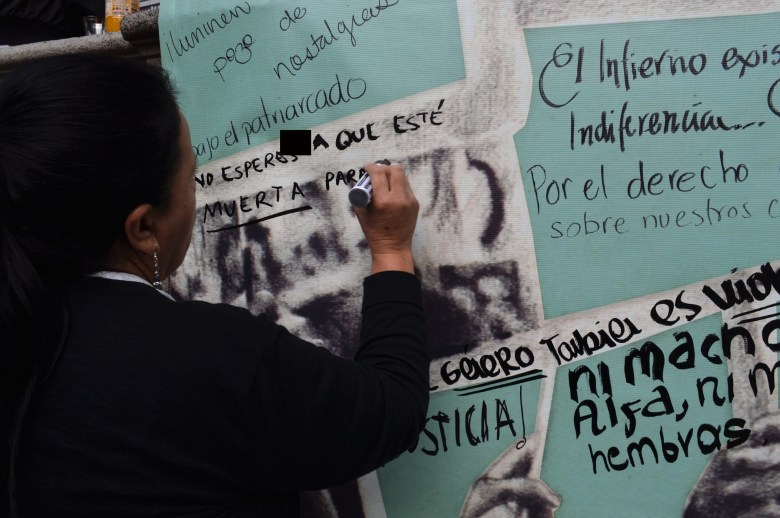 Iluminen
pozo de
nostalgias
abajo el patriarcado
NO ESPERES A QUE ESTÉ
MUERTA PARA
El Infierno exis
Indiferencia...
Por el derecho
sobre nuestros c
GÉNERO También es viol
USTICIA!
ni macho
Alfa, ni m
hembras